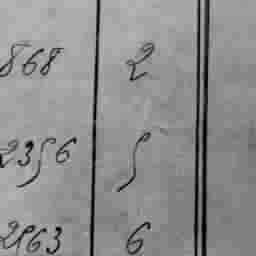 868 2
2356 5
2163 6